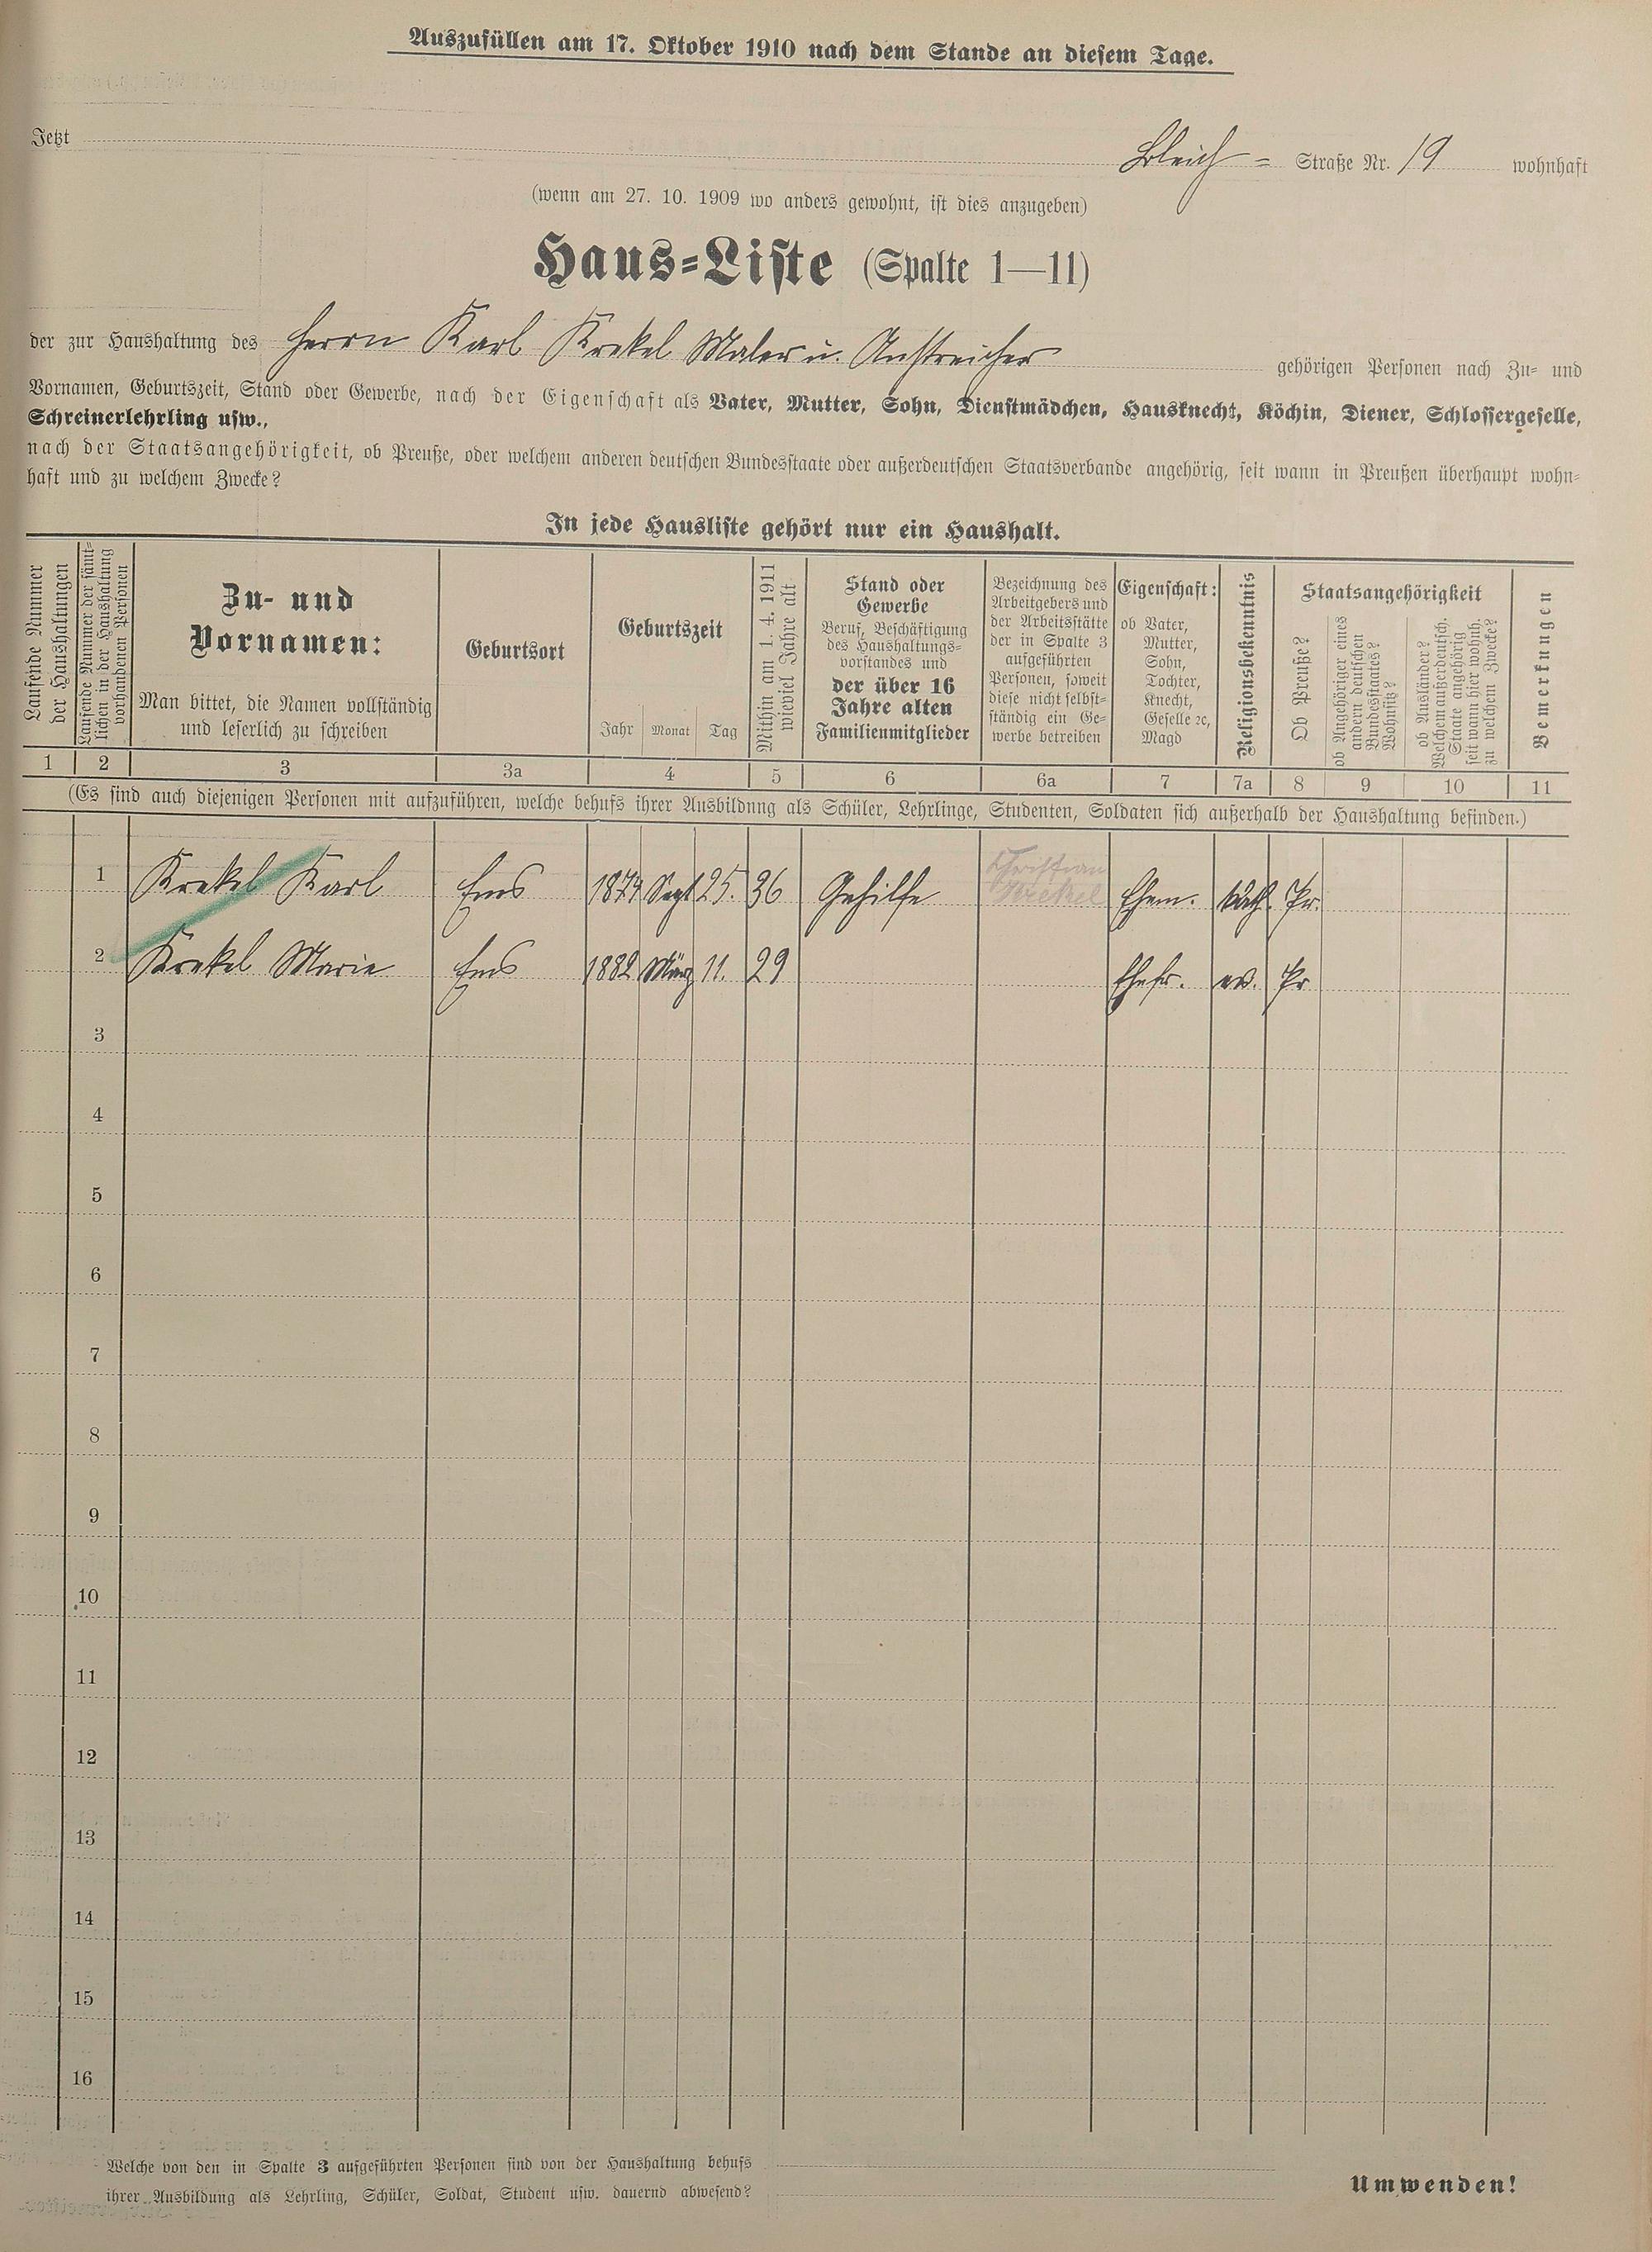 Auszufüllen am 17. Oktober 1910 nach dem Stande an diesem Tage.
Jetzt Bleich- Straße Nr. 19 wohnhaft
(wenn am 27. 10. 1909 wo anders gewohnt, ist dies anzugeben)
Haus-Liste (Spalte 1—11)
der zur Haushaltung des Herrn Karl Krekel Maler u. Anstreicher gehörigen Personen nach Zu- und
Vornamen, Geburtszeit, Stand oder Gewerbe, nach der Eigenschaft als Vater, Mutter, Sohn, Dienstmädchen, Hausknecht, Köchin, Diener, Schlossergeselle,
Schreinerlehrling usw.,
nach der Staatsangehörigkeit, ob Preuße, oder welchem anderen deutschen Bundesstaate oder außerdeutschen Staatsverbande angehörig, seit wann in Preußen überhaupt wohn-
haft und zu welchem Zwecke?
In jede Hausliste gehört nur ein Haushalt.
Laufende Nummer
der Haushaltungen
Laufende Nummer der sämt-
lichen in der Haushaltung
vorhandenen Personen
Zu- und
Vornamen:
Man bittet, die Namen vollständig
und leserlich zu schreiben
Geburtsort
Geburtszeit
Jahr Monat Tag
Mithin am 1. 4. 1911
wieviel Jahre alt
Stand oder
Gewerbe
Beruf, Beschäftigung
des Haushaltungs-
vorstandes und
der über 16
Jahre alten
Familienmitglieder
Bezeichnung des
Arbeitgebers und
der Arbeitsstätte
der in Spalte 3
aufgeführten
Personen, soweit
diese nicht selbst-
ständig ein Ge-
werbe betreiben
Eigenschaft:
ob Vater,
Mutter,
Sohn,
Tochter,
Knecht,
Geselle ꝛc,
Magd
Religionsbekenntnis
Staatsangehörigkeit
Ob Preuße?
ob Angehöriger eines
andern deutschen
Bundesstaates?
Wohnsitz?
ob Ausländer?
Welchem außerdeutsch.
Staate angehörig
seit wann hier wohnh.
zu welchem Zwecke?
Bemerkungen
1 2 3 3a 4 5 6 6a 7 7a 8 9 10 11
(Es sind auch diejenigen Personen mit aufzuführen, welche behufs ihrer Ausbildung als Schüler, Lehrlinge, Studenten, Soldaten sich außerhalb der Haushaltung befinden.)
1 Krekel Karl Ems 1874 Sept 25. 36 Gehilfe Christian Krekel Ehem. kath. Pr.
2 Krekel Marie Ems 1882 März 11. 29 Ehefr. ev. Pr
3
4
5
6
7
8
9
10
11
12
13
14
15
16
Welche von den in Spalte 3 aufgeführten Personen sind von der Haushaltung behufs
ihrer Ausbildung als Lehrling, Schüler, Soldat, Student usw. dauernd abwesend?
Umwenden!